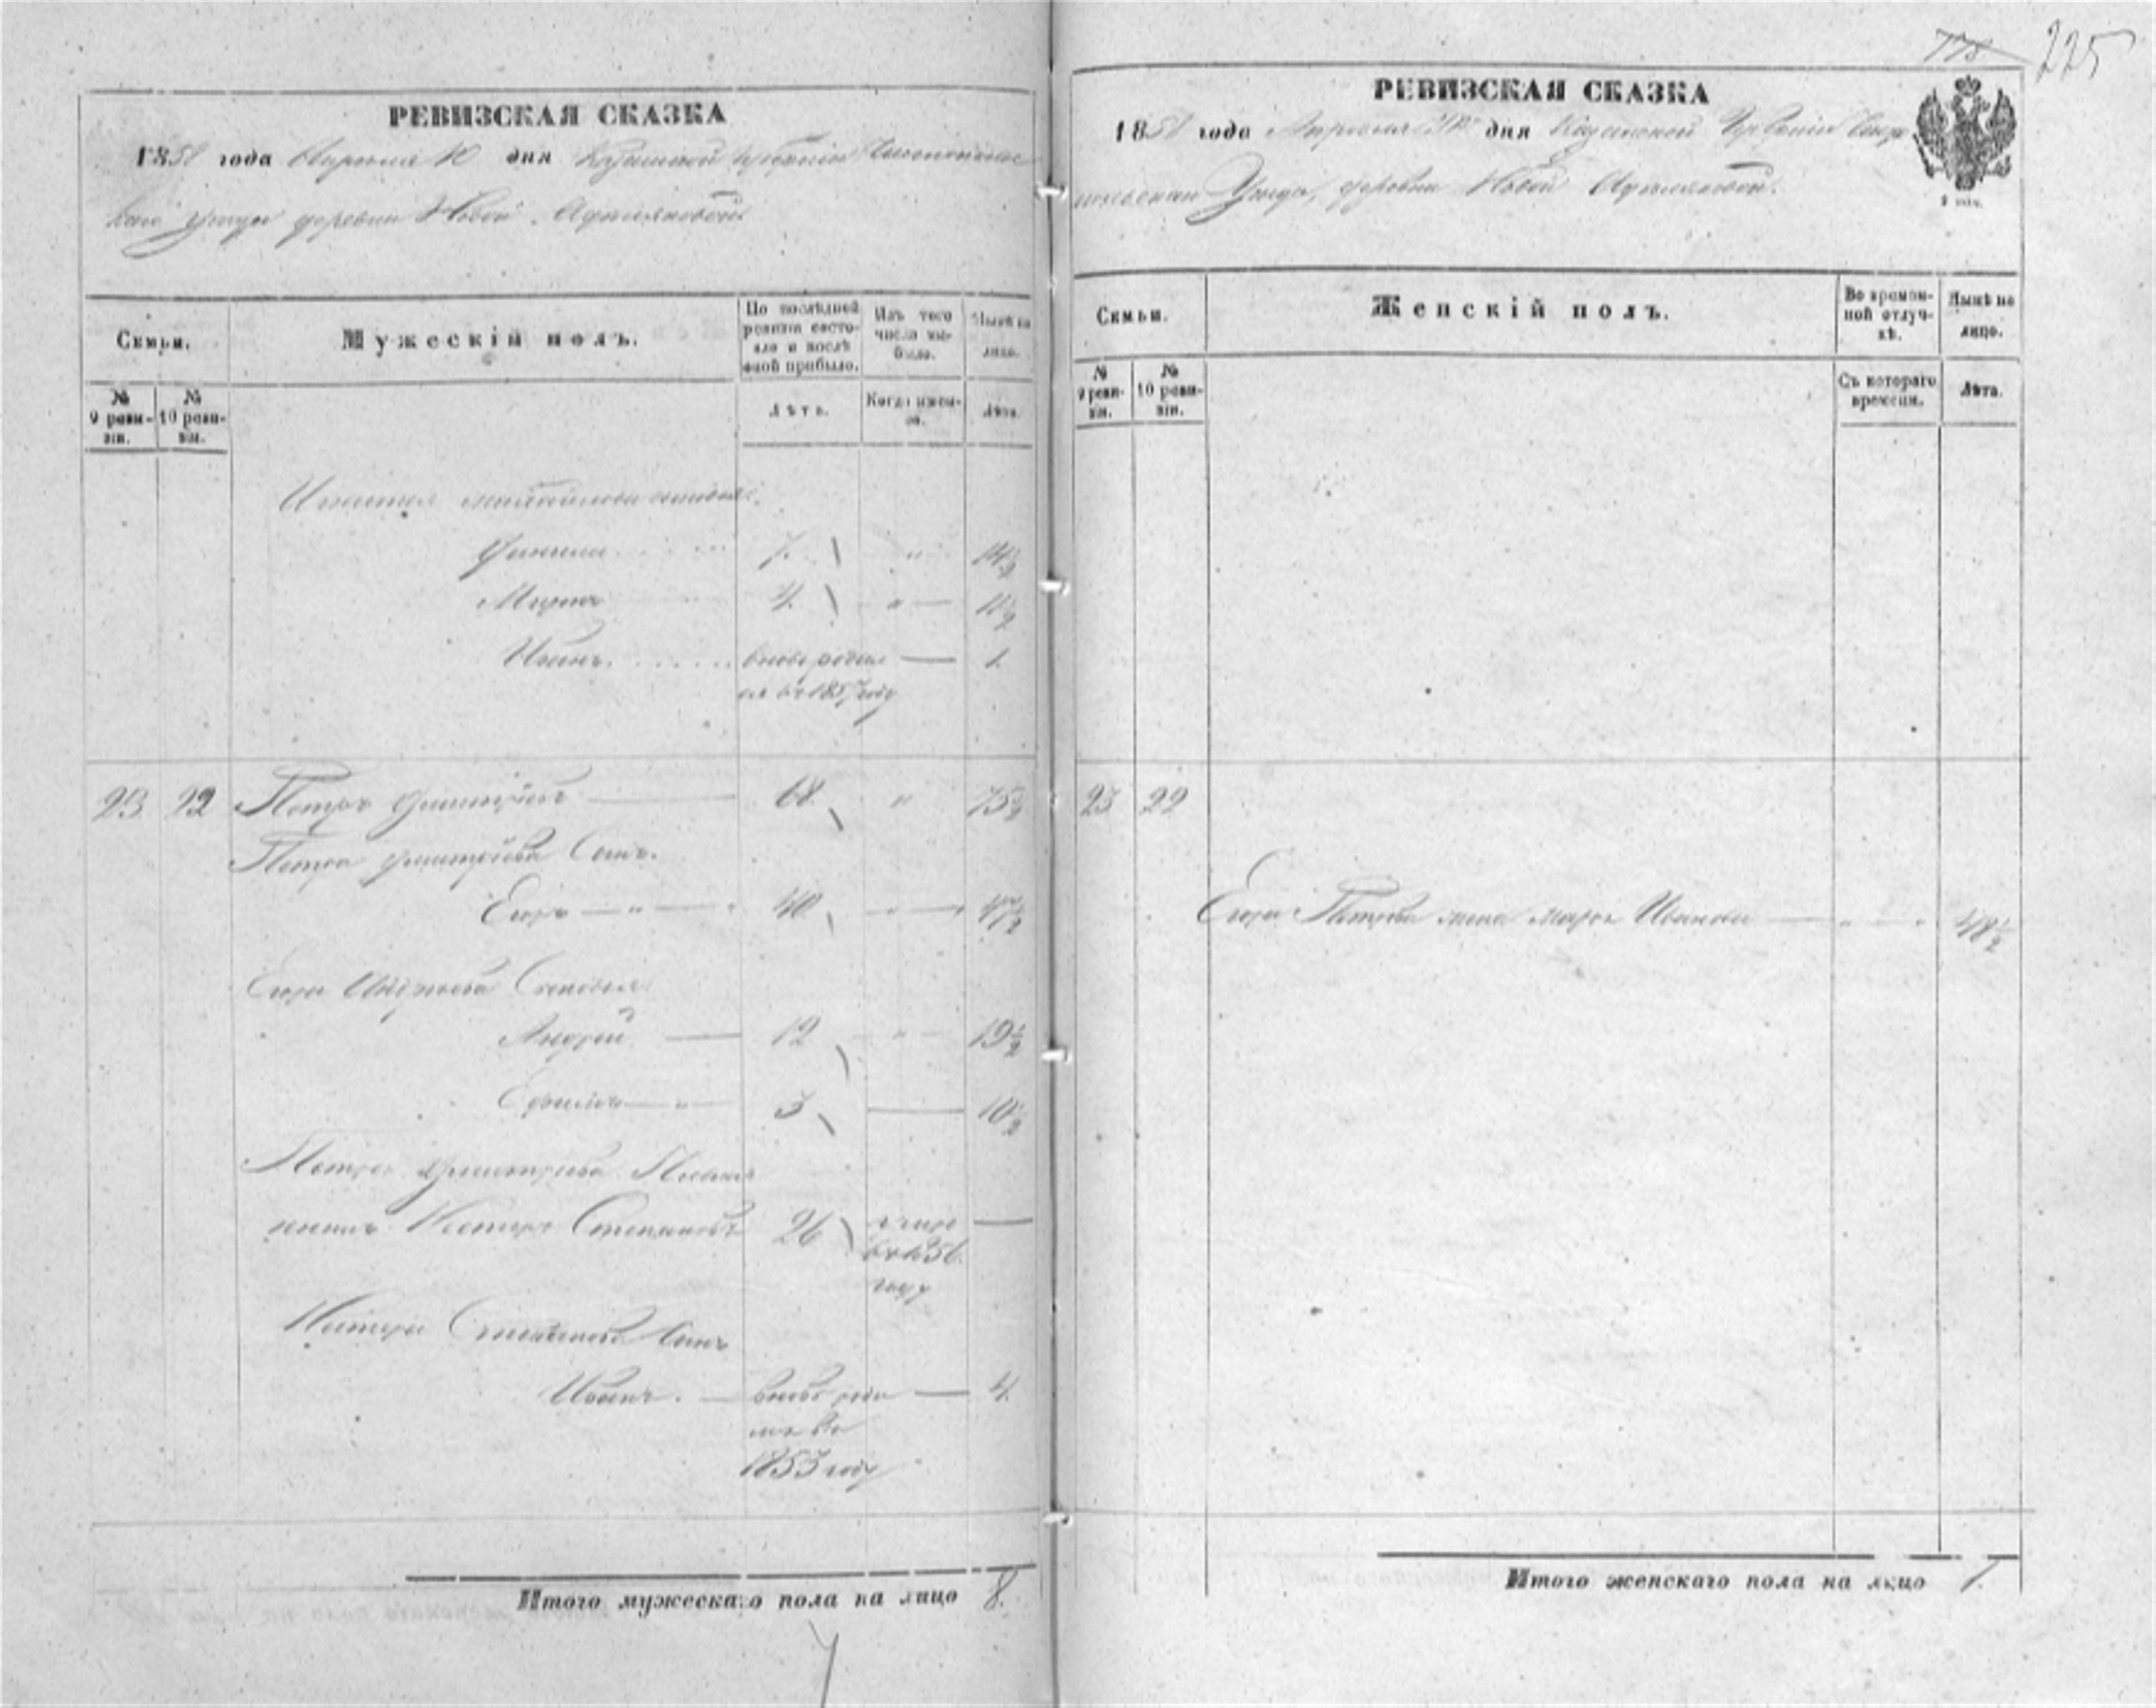 225
РЕВИЗСКАЯ СКАЗКА
1858 года Апреля 10 дня Казанской Губернии Чистопольс
каго уезда деревни Новой Адельяковой
Семьи.
Мужескій полъ.
По послѣдней ревизіи состояло и послѣ оной прибыло.
Изъ того числа выбыло.
Нынѣ на лицо.
№ 9 ревизіи.
№ 10 ревизіи.
Лѣта.
Когда именно.
Лѣта.
сыновья
7. " 14½
4. " 11½
Иванъ вновь родил 1.
ся въ 1857 году
23 22 Петръ Дмитріевъ 68 " 75½
Петра Дмитріева Сынъ.
Егоръ " 40 " 47½
Егора Сыновья
Андрей 12 " 19½
Ефимъ " 3 10½
Петра Дмитріева Племян
никъ Степановъ 26 умре
въ 1856
году
Степанова Сынъ
Иванъ. вновь роди 4.
лся въ
1853 году
Итого мужескаго пола на лицо 8.
РЕВИЗСКАЯ СКАЗКА
1858 года Апреля 10 дня Казанской Губернии Чисто
польскаго Уезда, деревни Новой Адельяковой.
2 коп.
Семьи.
Женскій полъ.
Во временной отлучкѣ.
Нынѣ на лицо.
№ 9 ревизіи.
№ 10 ревизіи.
Съ котораго времени.
Лѣта.
23 22
Егора Петрова жена Марья Иванова " 48½
Итого женскаго пола на лицо 1.